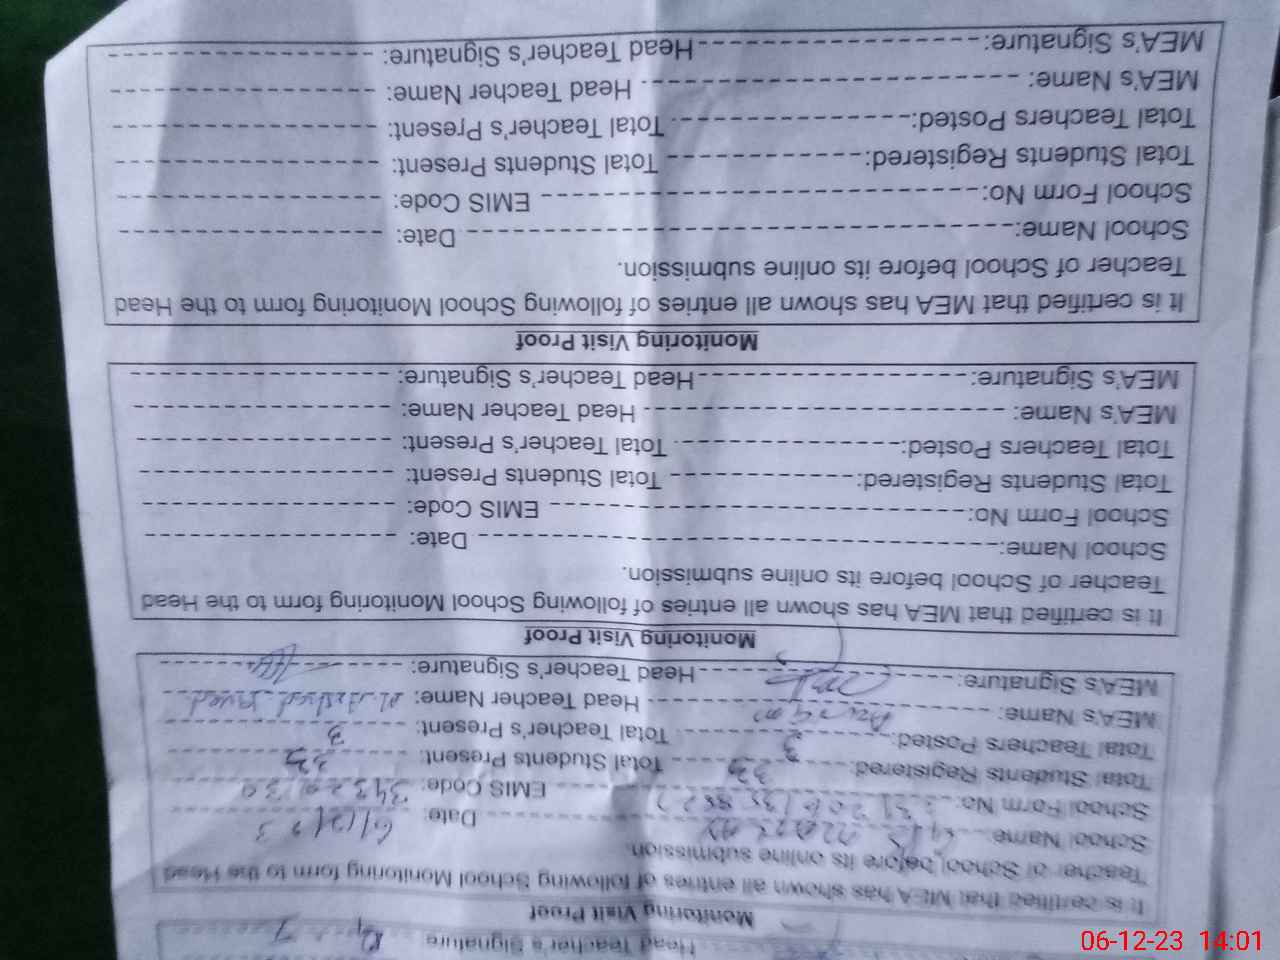 Head Teacher's Signature
Monitoring Visit Proof
It is certified that MEA has shown all entries of following School Monitoring form to the Head
Teacher of School before its online submission.
School Name: Date: 6/12/23
School Form No: EMIS Code:
Total Students Registered: Total Students Present:
Total Teachers Posted: 3 Total Teacher's Present: 3
MEA's Name: Head Teacher Name: M. Arshad Javed
MEA's Signature: Head Teacher's Signature:
Monitoring Visit Proof
It is certified that MEA has shown all entries of following School Monitoring form to the Head
Teacher of School before its online submission.
School Name: Date:
School Form No: EMIS Code:
Total Students Registered: Total Students Present:
Total Teachers Posted: Total Teacher's Present:
MEA's Name: Head Teacher Name:
MEA's Signature: Head Teacher's Signature:
Monitoring Visit Proof
It is certified that MEA has shown all entries of following School Monitoring form to the Head
Teacher of School before its online submission.
School Name: Date:
School Form No: EMIS Code:
Total Students Registered: Total Students Present:
Total Teachers Posted: Total Teacher's Present:
MEA's Name: Head Teacher Name:
MEA's Signature: Head Teacher's Signature:
06-12-23 14:01